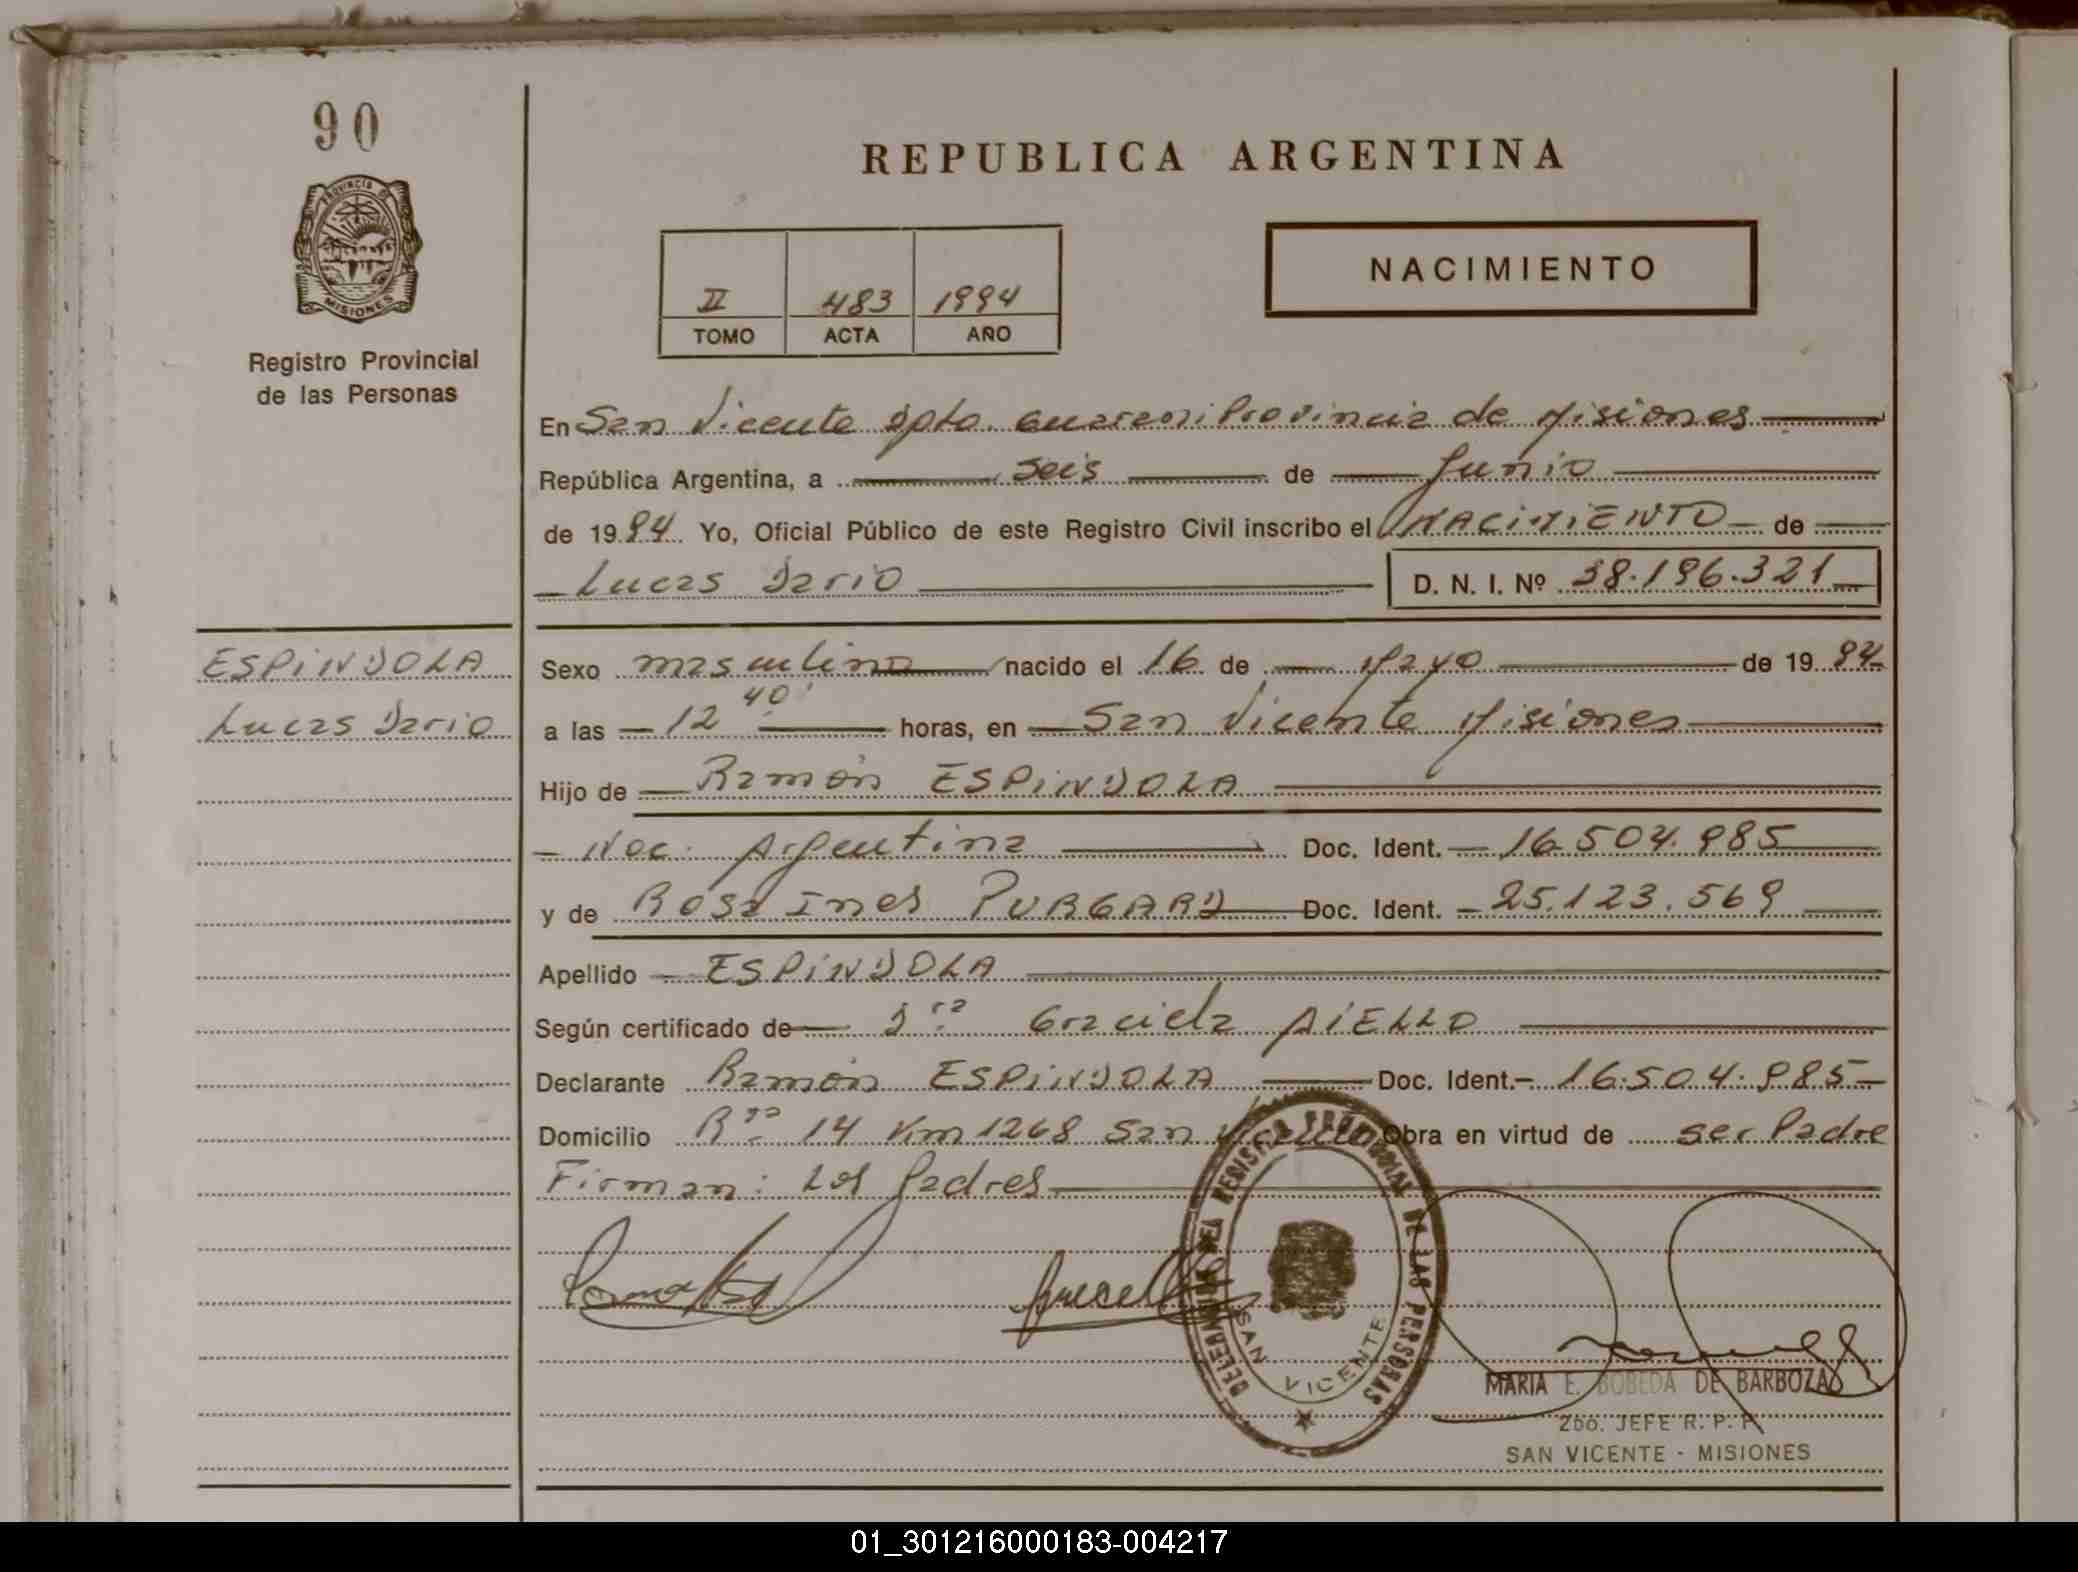 90
PROVINCIA DE
MISIONES
Registro Provincial
de las Personas
REPUBLICA ARGENTINA
II 483 1994
TOMO ACTA AÑO
NACIMIENTO
En San Vicente Dpto. Guarani Provincia de Misiones
República Argentina, a seis de Junio
de 1994 Yo, Oficial Público de este Registro Civil inscribo el NACIMIENTO de
Lucas Dario D. N. I. Nº 38.196.321
ESPINDOLA
Lucas Dario
Sexo masculino nacido el 16 de Mayo de 1994
a las 12 40' horas, en San Vicente Misiones
Hijo de Ramón ESPINDOLA
Nac. Argentina Doc. Ident. 16.504.985
y de Rosa Ines PURGARD Doc. Ident. 25.123.569
Apellido ESPINDOLA
Según certificado de Dra Graciela AIELLO
Declarante Ramón ESPINDOLA Doc. Ident. 16.504.985
Domicilio Rta 14 Km 1268 San Vicente Obra en virtud de ser Padre
Firman: Los Padres
DELEGACION DEL REGISTRO PROVINCIAL DE LAS PERSONAS
SAN VICENTE
MARIA E. BOBEDA DE BARBOZA
2do. JEFE R. P. P.
SAN VICENTE - MISIONES
01_301216000183-004217